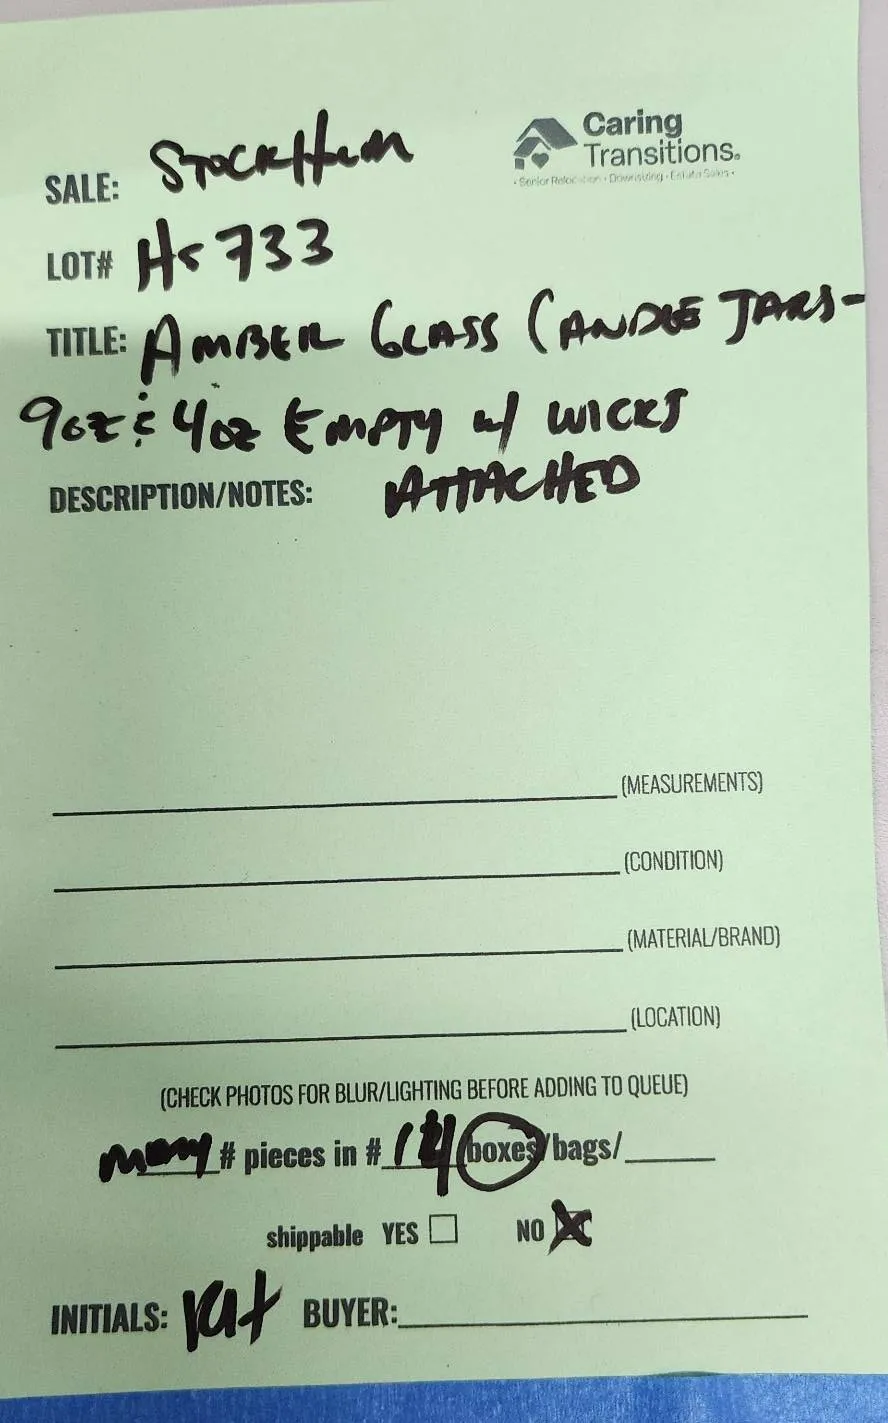 Caring
Transitions.
• Senior Relocation • Downsizing • Estate Sales •
SALE: STOCKHum
LOT# HS 733
TITLE: AMBER GLASS CANDLE JARS-
9oz & 4oz EMPTY w/ WICKS
ATTACHED
DESCRIPTION/NOTES:
(MEASUREMENTS)
(CONDITION)
(MATERIAL/BRAND)
(LOCATION)
(CHECK PHOTOS FOR BLUR/LIGHTING BEFORE ADDING TO QUEUE)
many # pieces in # boxes/bags/
shippable YES NO
INITIALS: BUYER: